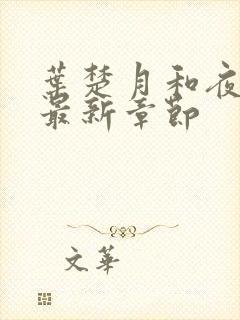 葉楚月和夜
最新章節
文華